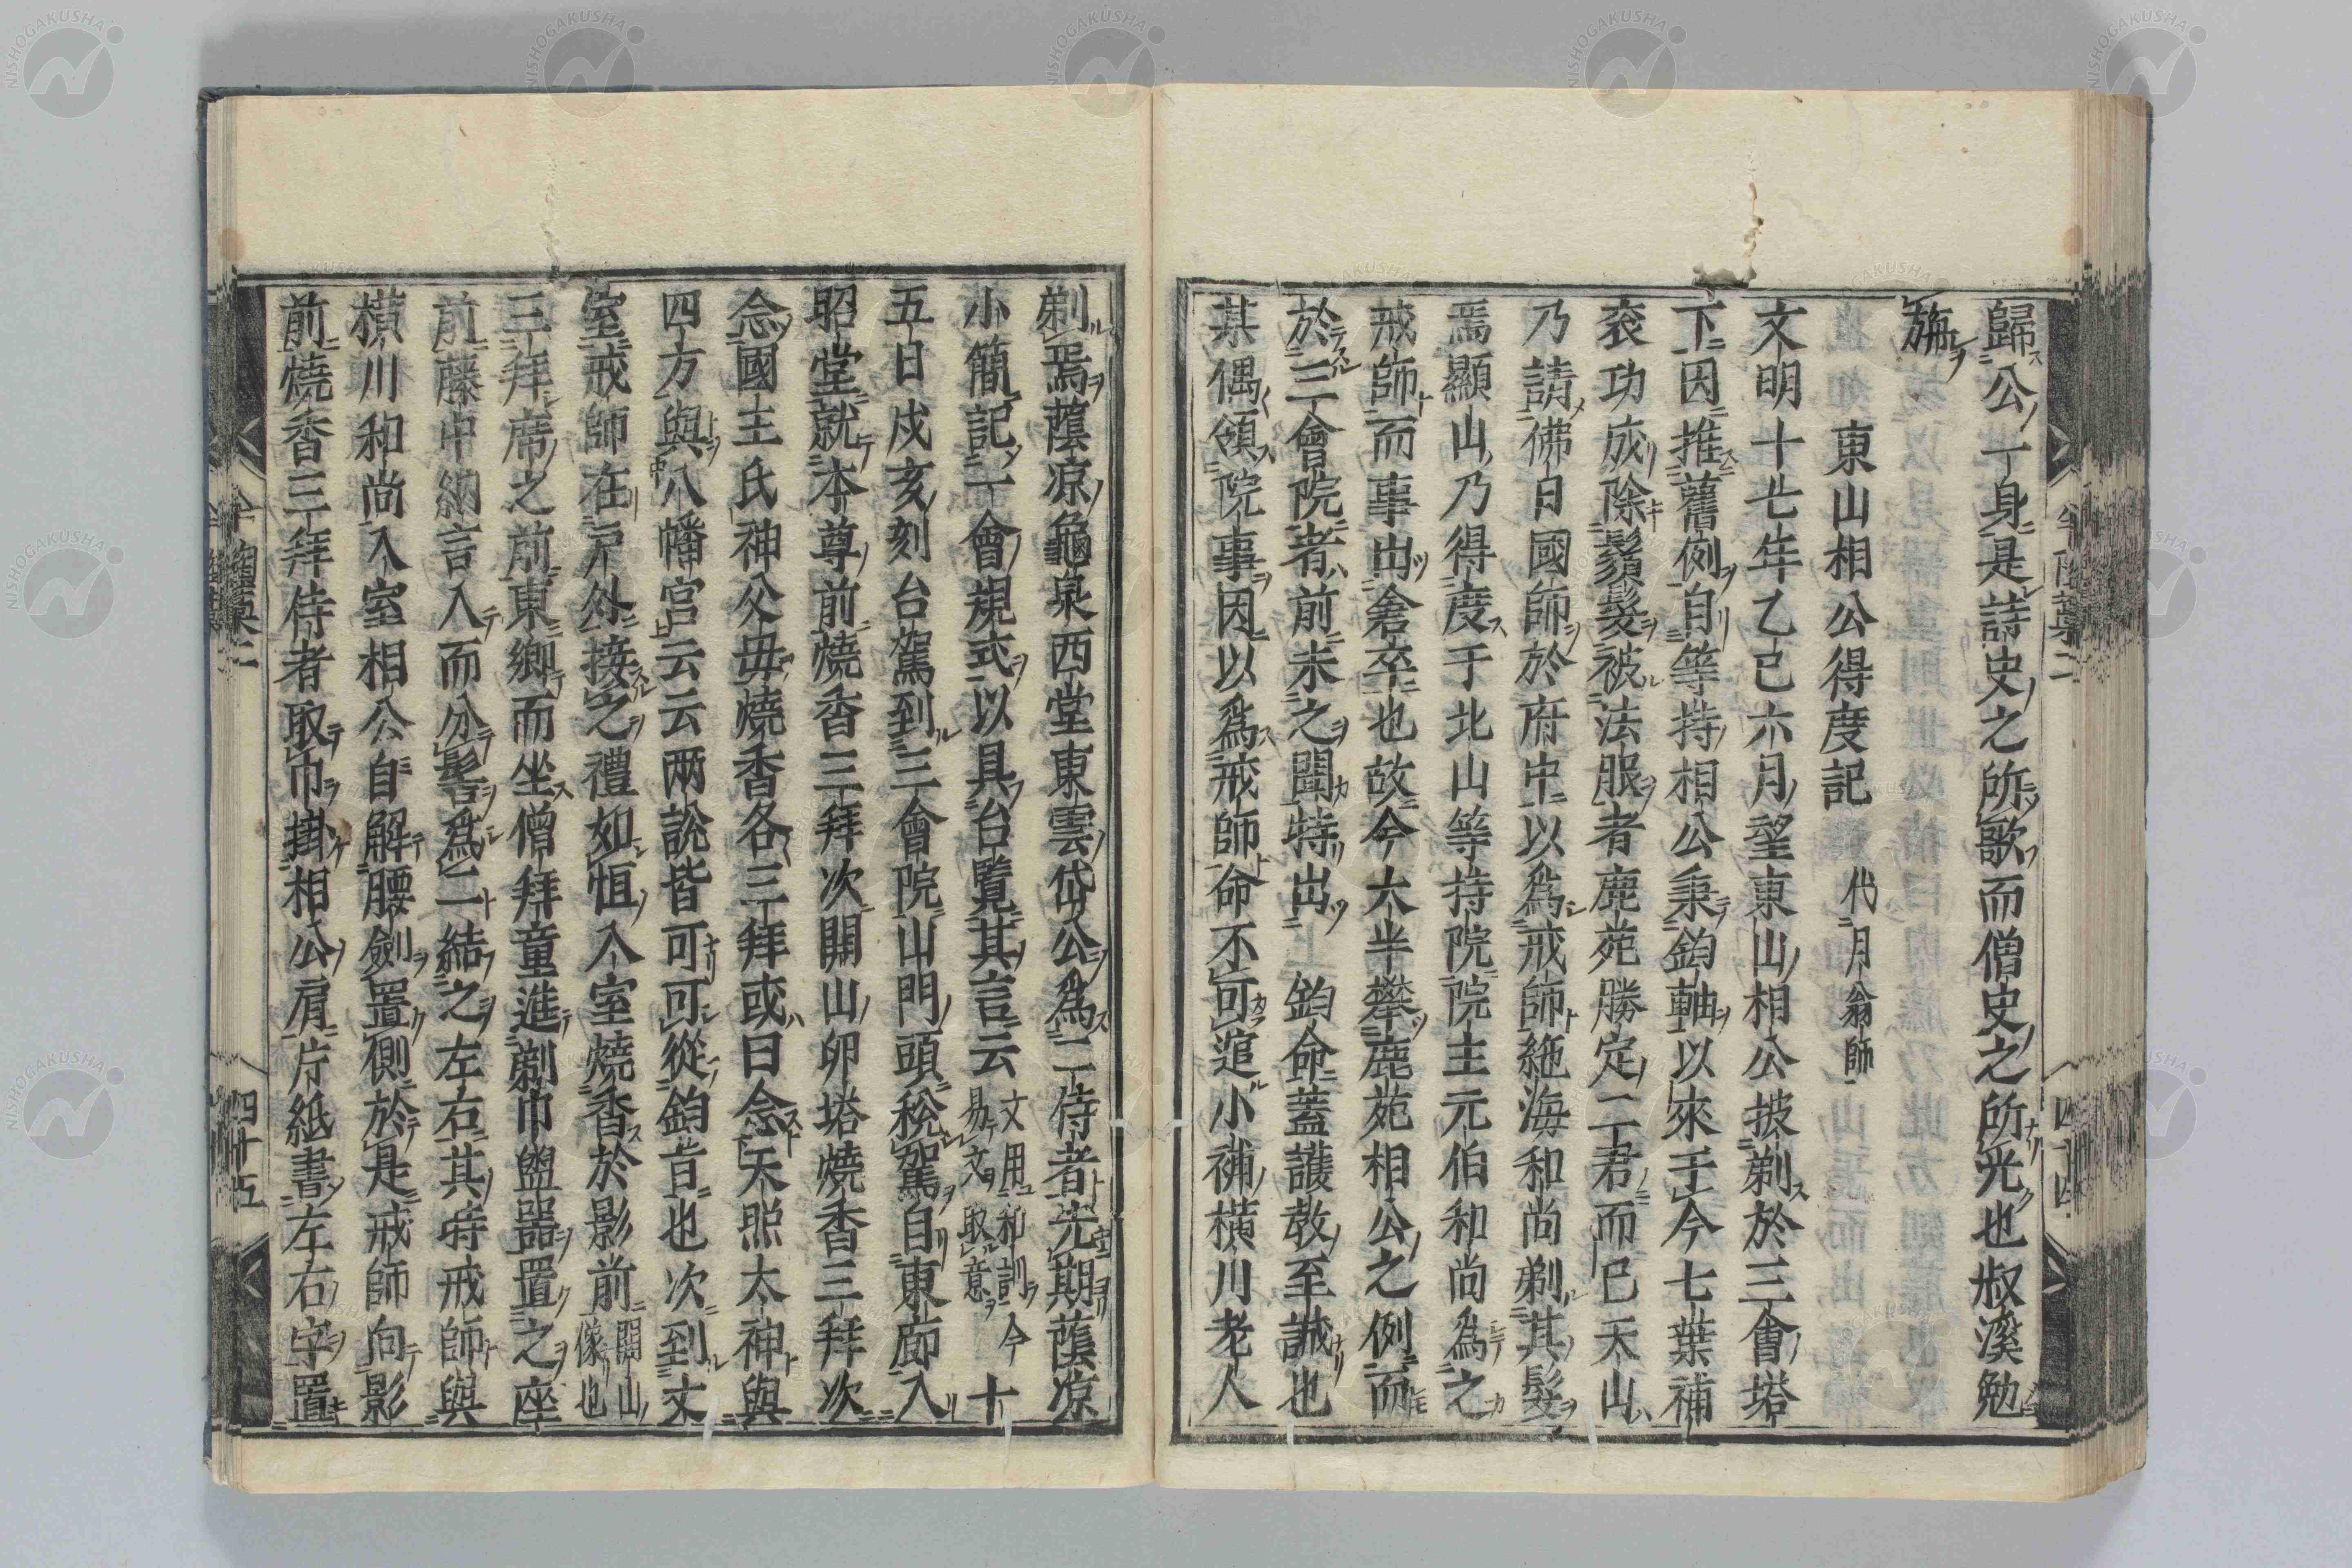 歸公一身是詩史之所歌而僧史之所光也叔溪勉
旃
東山相公得度記 代月翁師
文明十七年乙巳六月望東山相公披剃於三會塔
下因推舊例自等持相公秉鈞軸以來于今七葉補
袞功成除鬚髮被法服者鹿苑勝定二君而已天山
乃請佛日國師於府中以爲戒師絶海和尚剃其髮
焉顯山乃得度于北山等持院院主元伯和尚爲之
戒師而事出倉卒也故今大半攀鹿苑相公之例而
於三會院者前未之聞特出 鈞命蓋護教至誠也
某偶領院事因以爲戒師命不可逭小補橫川老人
剃焉蔭凉龜泉西堂東雲岱公爲二侍者先期蔭凉
小簡記一會規式以具台覽其言云 文用和訓今易文取意 十
五日戌亥刻台駕到三會院山門頭稅駕自東廊入
昭堂就本尊前燒香三拜次開山卯塔燒香三拜次
念國主氏神父毋燒香各三拜或曰念天照太神與
四方與八幡宮云云兩說皆可可從鈞旨也次到丈
室戒師在戶外接之禮如恒入室燒香於影前 開山像也
三拜席之前東鄉而坐僧拜童進剃巾盥器置之座
前藤中納言入而分髻爲二結之左右其時戒師與
橫川和尚入室相公自解腰劍置側於是戒師向影
前燒香三拜侍者取巾掛相公肩片紙書左右字置
四十四
四十五